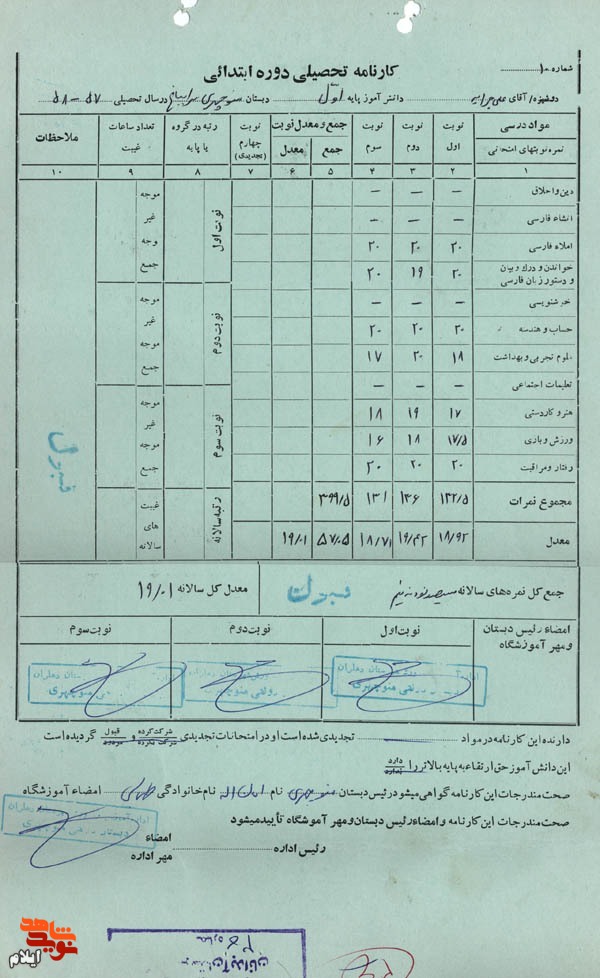 کارنامه تحصیلی دوره ابتدائی
شماره ۱۰
دوشیزه/آقای علی دانش آموز پایه اول دبستان منوچهری در سال تحصیلی ۵۷-۵۸
مواد درسی نوبت اول نوبت دوم نوبت سوم جمع و معدل نوبت نوبت چهارم (تجدیدی) رتبه در گروه یا پایه تعداد ساعات غیبت ملاحظات
نمره نوبتهای امتحانی جمع معدل
۱ ۲ ۳ ۴ ۵ ۶ ۷ ۸ ۹ ۱۰
دین و اخلاق – – – نوبت اول موجه
انشاء فارسی – – – غیر
املاء فارسی ۲۰ ۲۰ ۲۰ وجه
خواندن و درك و بیان و دستور زبان فارسی ۲۰ ۱۹ ۲۰ جمع
خوشنویسی – – – نوبت دوم موجه
حساب و هندسه ۲۰ ۲۰ ۲۰ غیر
علوم تجربی و بهداشت ۱۸ ۲۰ ۱۷ موجه
تعلیمات اجتماعی – – – جمع
هنر و کاردستی ۱۷ ۱۹ ۱۸ نوبت سوم موجه
ورزش و بازی ۱۷/۵ ۱۸ ۱۶ غیر
رفتار و مراقبت ۲۰ ۲۰ ۲۰ موجه
جمع
قبول
مجموع نمرات ۱۳۲/۵ ۱۳۶ ۱۳۱ ۳۹۹/۵ رتبه سالانه غیبت
معدل ۱۸/۹۲ ۱۹/۴۲ ۱۸/۷۱ ۵۷/۰۵ ۱۹/۰۱ های سالانه
جمع کل نمره های سالانه سیصد نود نه نیم قبول معدل کل سالانه ۱۹/۰۱
امضاء رئیس دبستان و مهر آموزشگاه نوبت اول نوبت دوم نوبت سوم
دارنده این کارنامه در مواد تجدیدی شده است او در امتحانات تجدیدی شرکت کرده و قبول گردیده است
شرکت نکرده مردود
این دانش آموز حق ارتقاء به پایه بالاتر را دارد
ندارد
صحت مندرجات این کارنامه گواهی میشود رئیس دبستان منوچهری نام امان اله نام خانوادگی امضاء آموزشگاه
صحت مندرجات این کارنامه و امضاء رئیس دبستان و مهر آموشگاه تأیید میشود
رئیس اداره امضاء
مهر اداره
نوید شاهد
ایلام